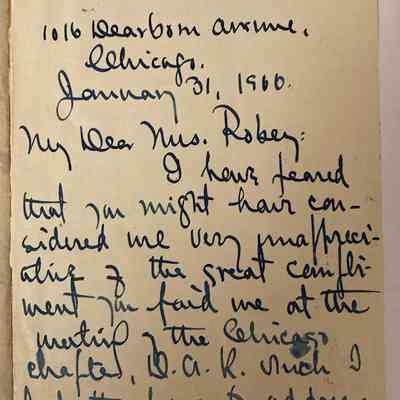 1016 Dearborn Avenue,
Chicago.
January 31, 1900.
My Dear Mrs. Robey:
I have feared
that you might have con-
sidered me very unappreci-
ative of the great compli-
ment you paid me at the
meeting of the Chicago
chapter, D.A.R. which I
had the honor to address